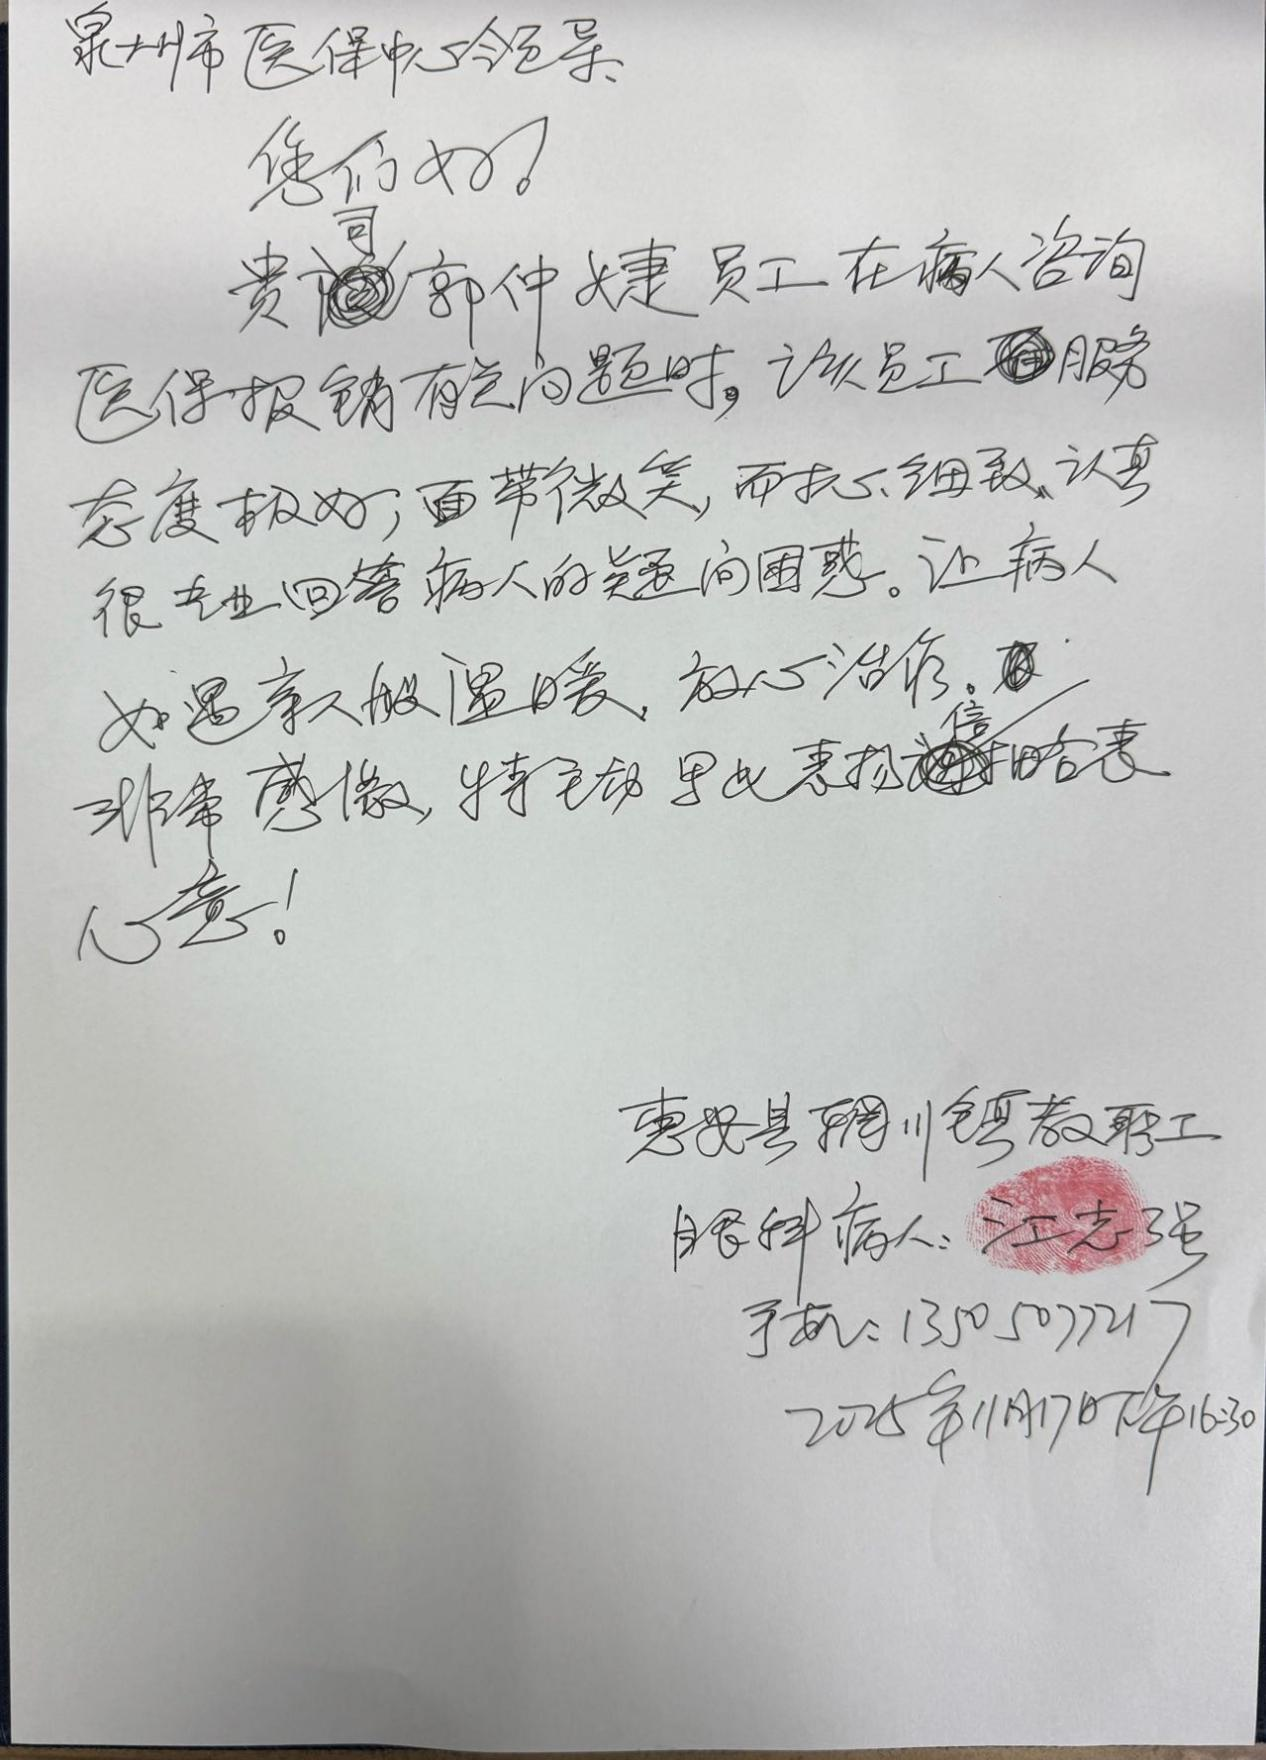 泉州市医保中心领导、
您们好！
贵司郭仲婕员工在病人咨询
医保报销有关问题时。该员工服务
态度极好，面带微笑，耐心、细致、认真
很专业回答病人的疑问困惑。让病人
如遇亲人般温暖，放心治疗。
非常感激，特主动写此表扬信略表
心意！
惠安县辋川镇教职工
眼科病人：江志强
手机：13505077217
2025年11月17日下午16:30